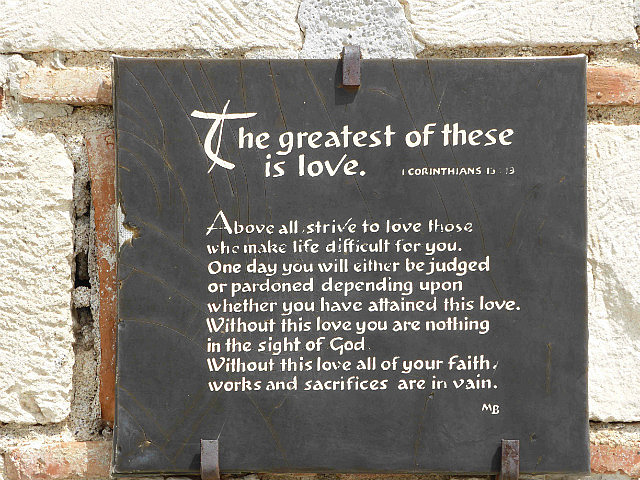 The greatest of these
is love.
1 CORINTHIANS 13:13
Above all, strive to love those
who make life difficult for you.
One day you will either be judged
or pardoned depending upon
whether you have attained this love.
Without this love you are nothing
in the sight of God.
Without this love all of your faith,
works and sacrifices are in vain.
MB